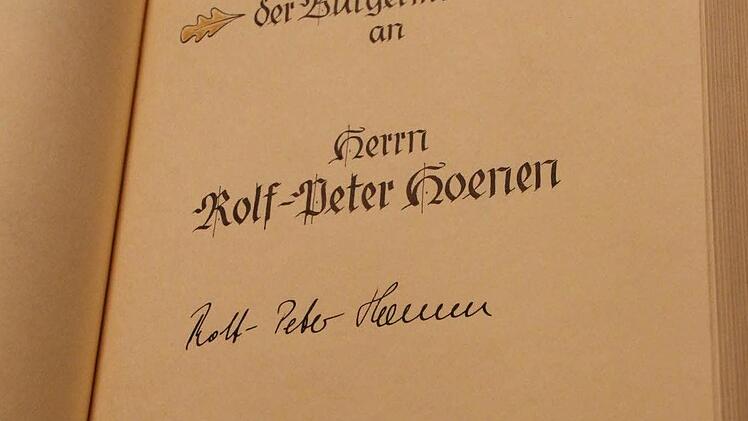 der
an
Herrn
Rolf-Peter Hoenen
Rolf-Peter Hoenen